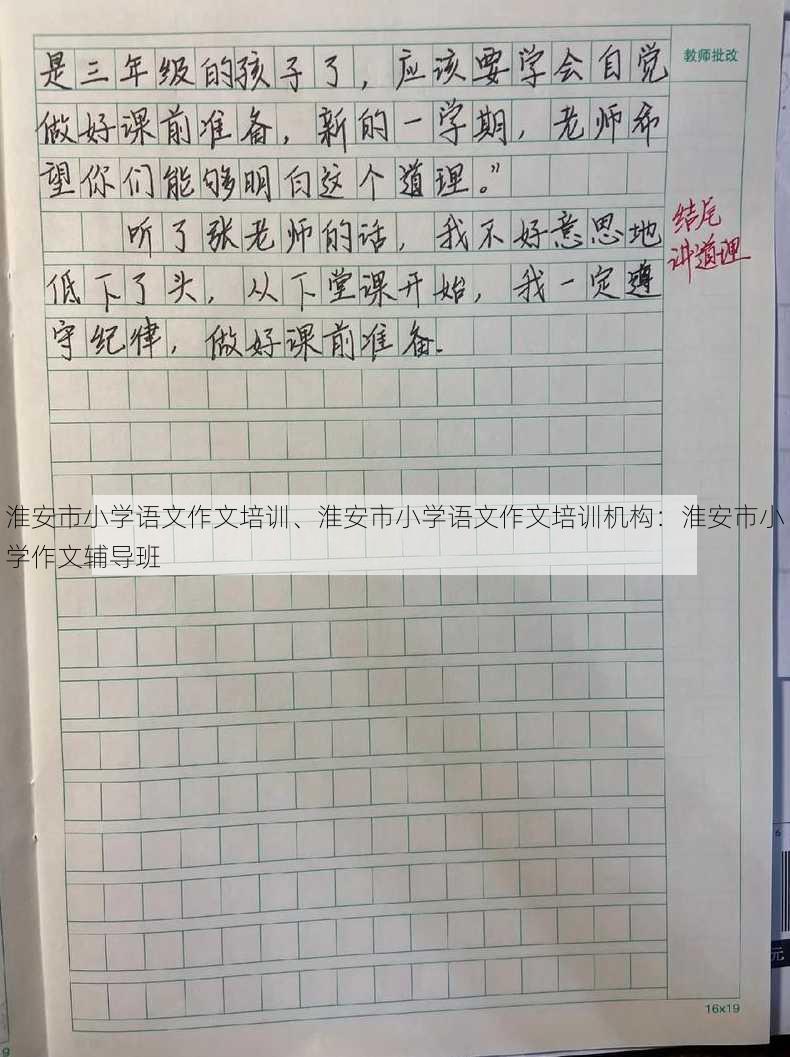 教师批改
是三年级的孩子了，应该要学会自觉
做好课前准备，新的一学期，老师希
望你们能够明白这个道理。”
听了张老师的话，我不好意思地
低下了头，从下堂课开始，我一定遵
守纪律，做好课前准备.
结尾
讲道理
淮安市小学语文作文培训、淮安市小学语文作文培训机构：淮安市小
学作文辅导班
16×19
6
元
9